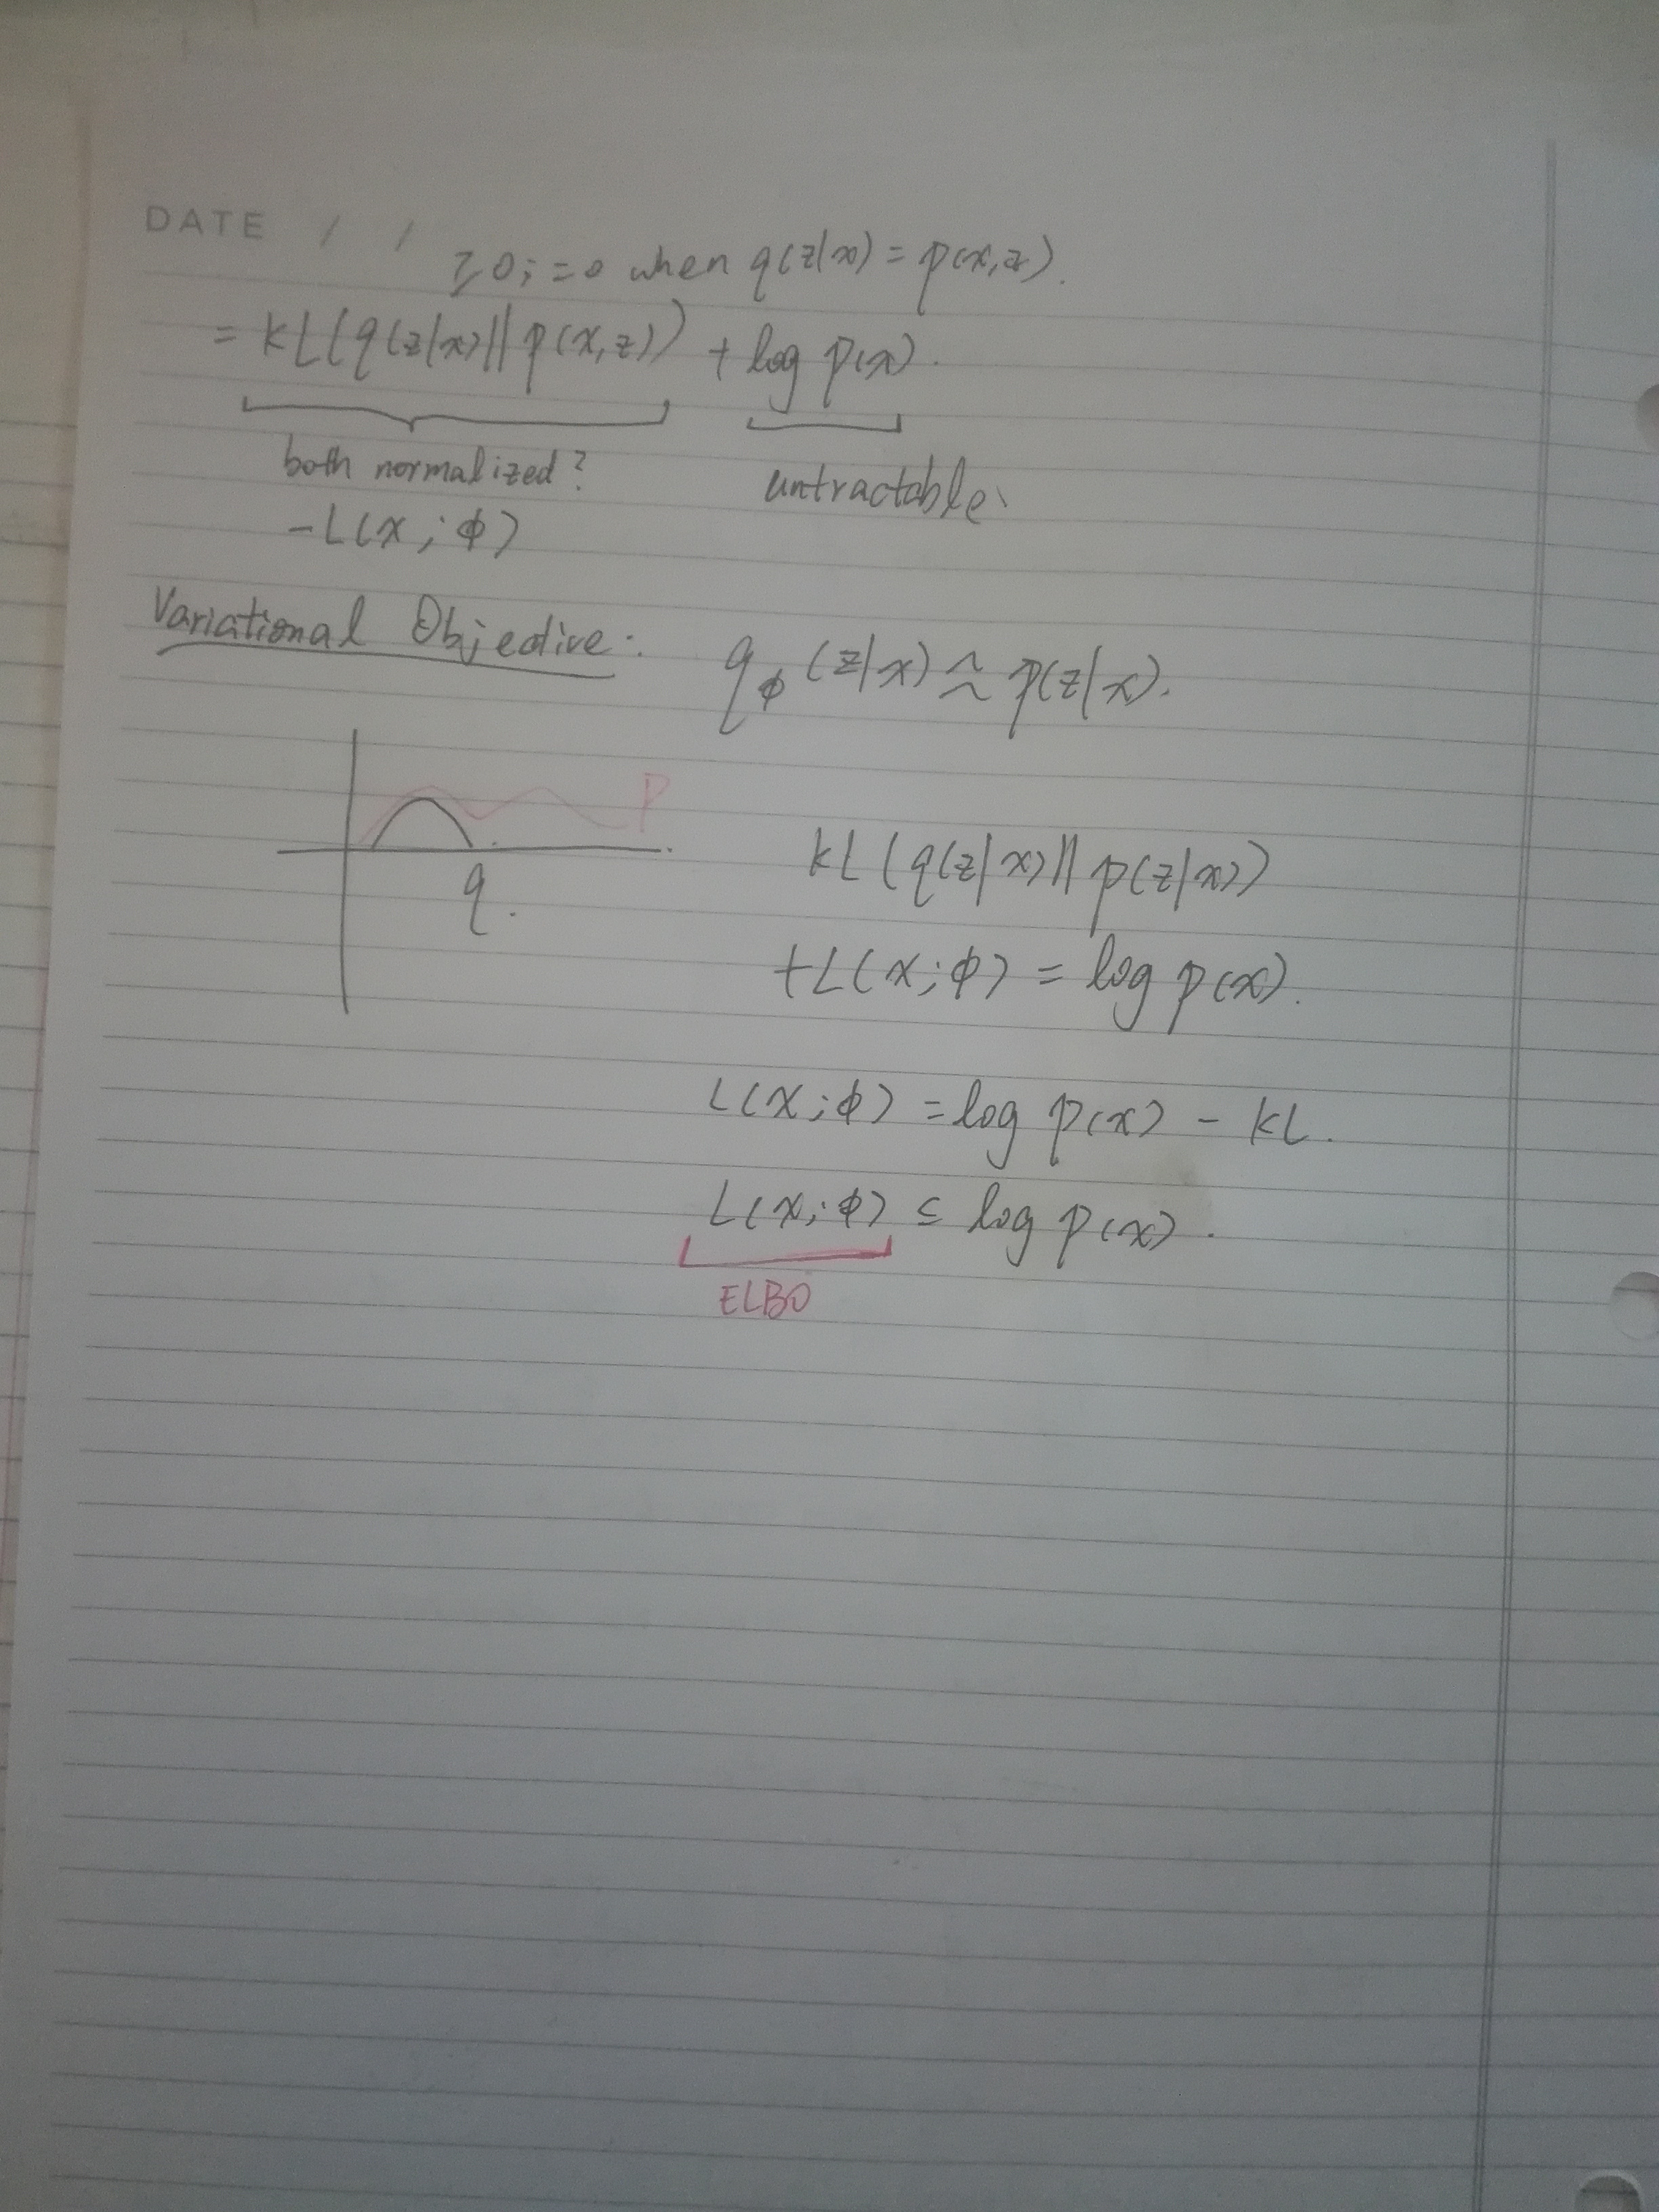 DATE / /
≥0; =0 when q(z|x) = p(x,z).
= KL(q(z|x)||p(x,z)) + log p(x).
both normalized? untractable.
-L(x; φ)
Variational Objective: q_φ(z|x) ≈ p(z|x).
P
q.
KL(q(z|x)||p(z|x))
+L(x;φ) = log p(x).
L(x;φ) = log p(x) - KL.
L(x;φ) ≤ log p(x).
ELBO